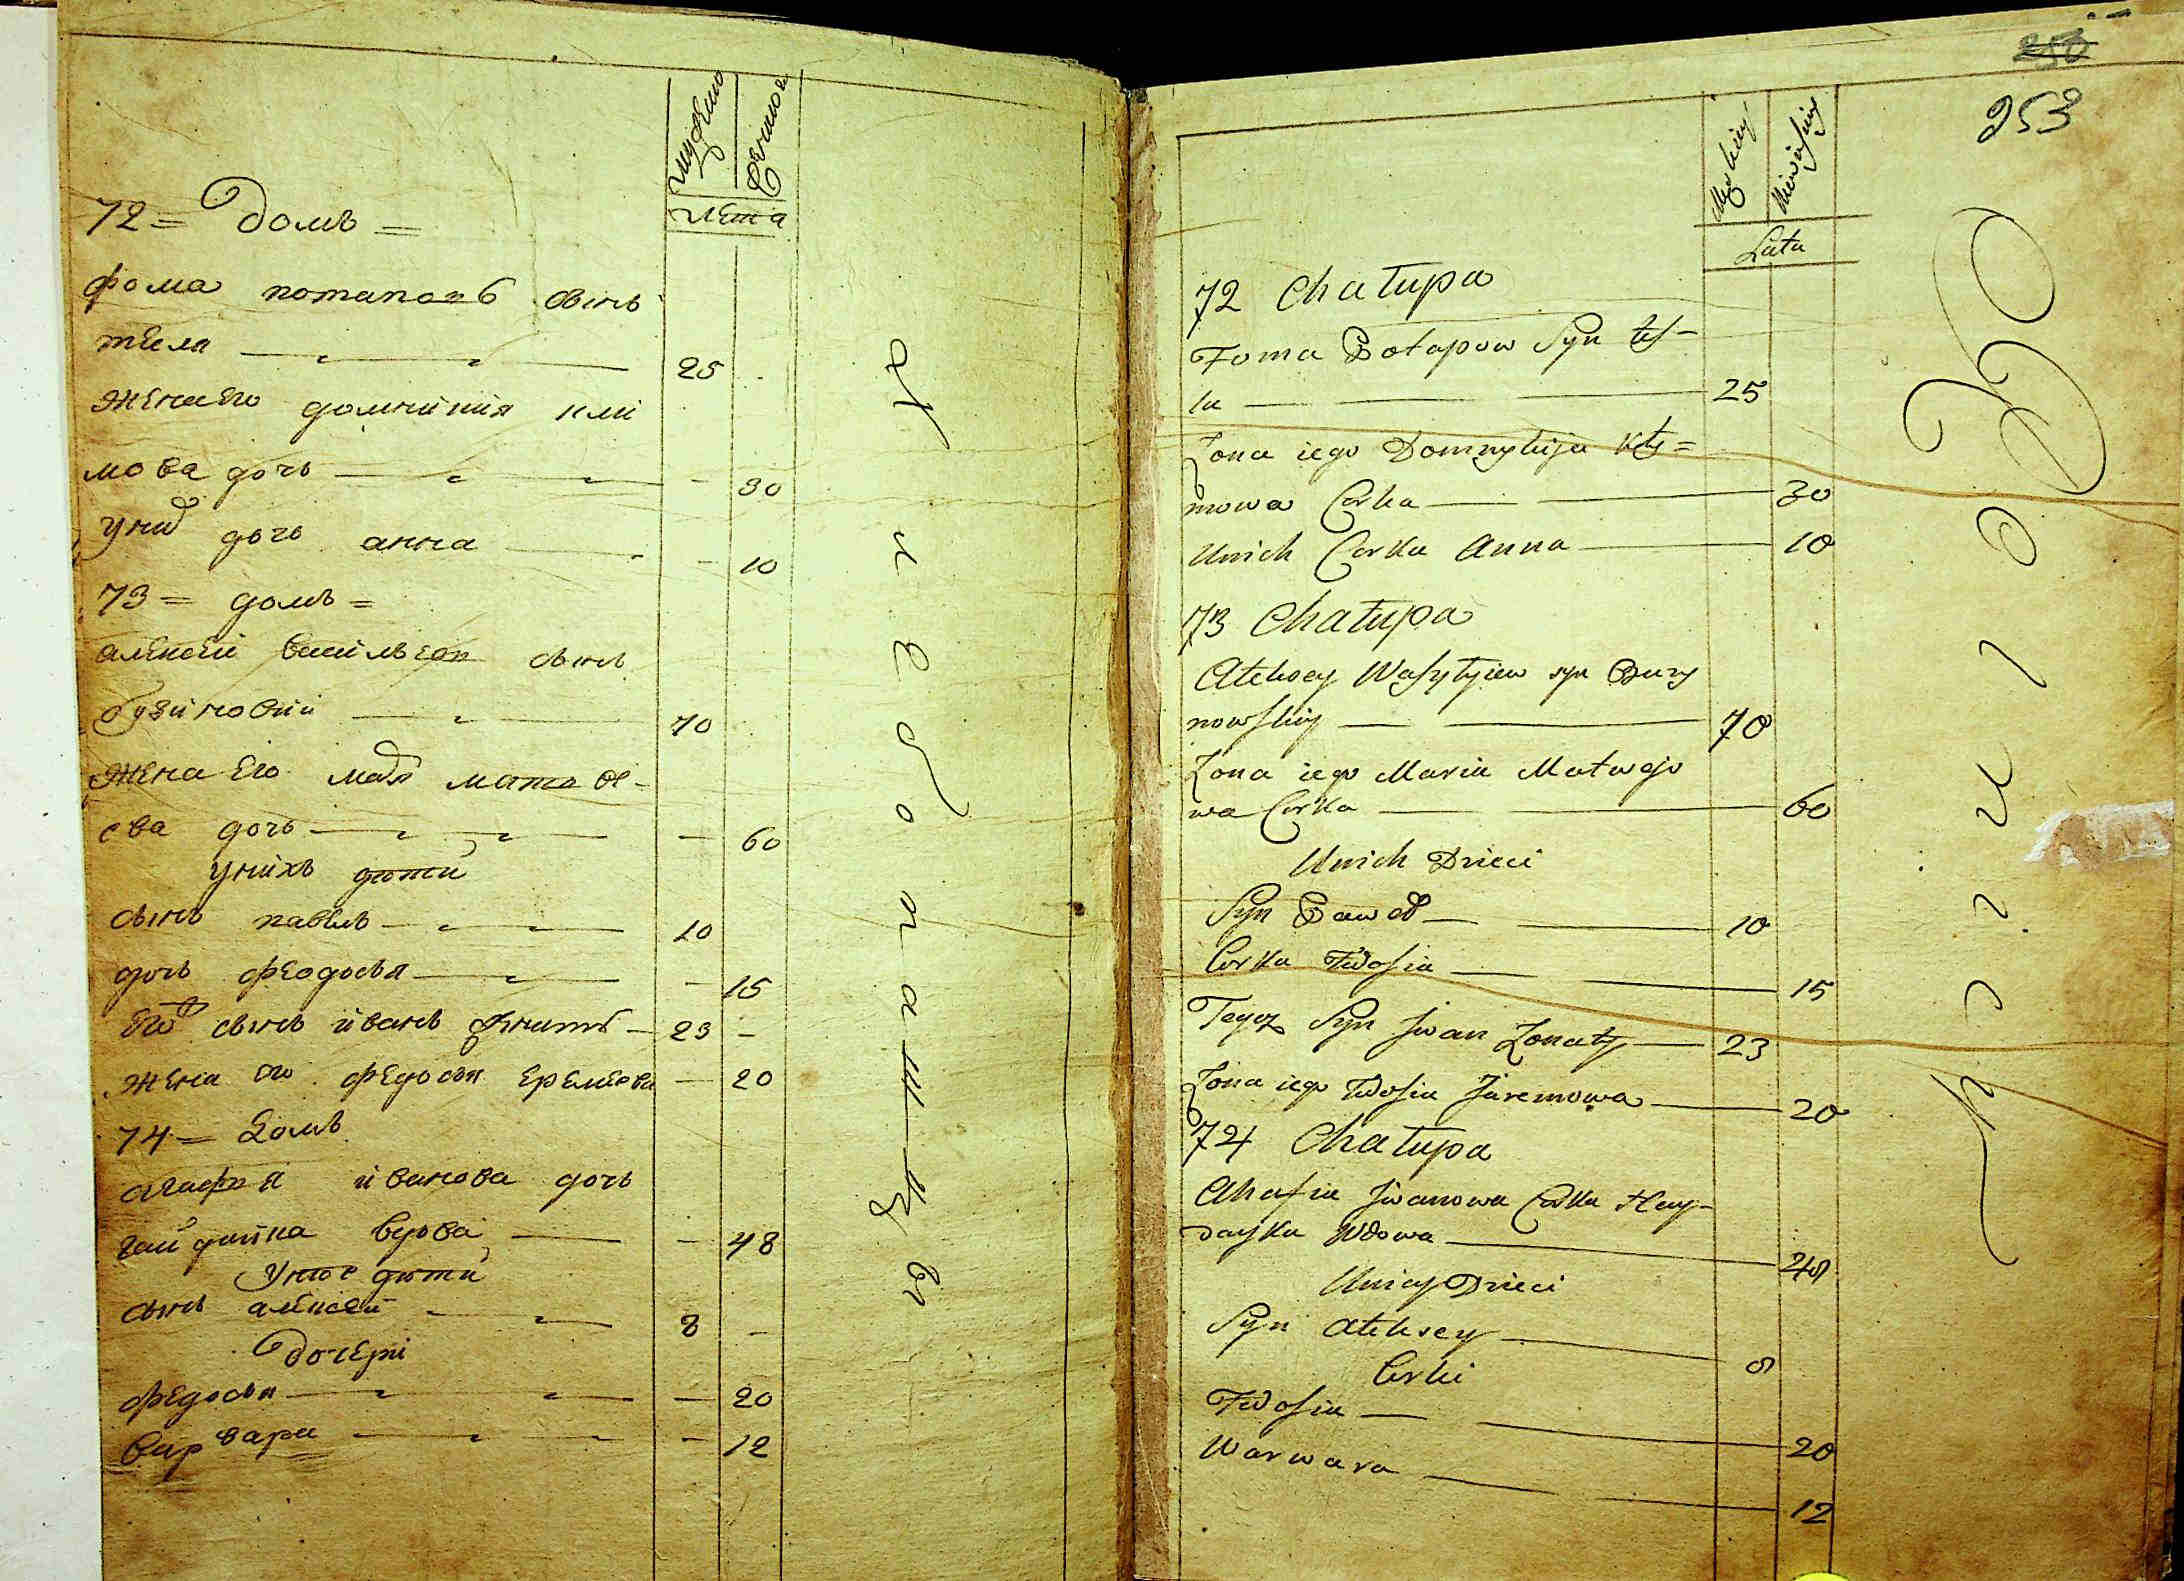 мужеска
женска
лета
72 = Домъ =
фома потаповъ сынъ
тесла 25
жена его домникия кли
мова дочь 30
у них дочь анна 10
73 = домъ =
алексей васильевъ сынъ
бузиновский 70
жена его мария матве
ева дочь 60
у нихъ дети
сынъ павелъ 10
дочь феодосья 15
его сынъ иванъ женатъ 23
жена его федосья еремеева 20
74 = Домъ
агафья иванова дочь
гайдайка вдова 48
у нее дети
сынъ алексей 8
дочери
федосья 20
варвара 12
253
Męskiey
Niewieściey
Lata
72 Chałupa
Foma Potapow Syn Teś-
la 25
Żona iego Domnykija Kły=
mowa Corka 30
Unich Corka Anna 10
73 Chałupa
Ałeksey Wasylyiew syn Buzy
nowskiy 70
Żona iego Maria Matwejo
wa Corka 60
Unich Dzieci
Syn Paweł 10
Corka Fedosia 15
Tegoż Syn Jwan Żonaty 23
Żona iego Fedosia Jaremowa 20
74 Chałupa
Ahafia Jwanowa Corka Hay-
dayka Wdowa 48
Uniey Dzieci
Syn Ałeksey 8
Corki
Fedosia 20
Warwara 12